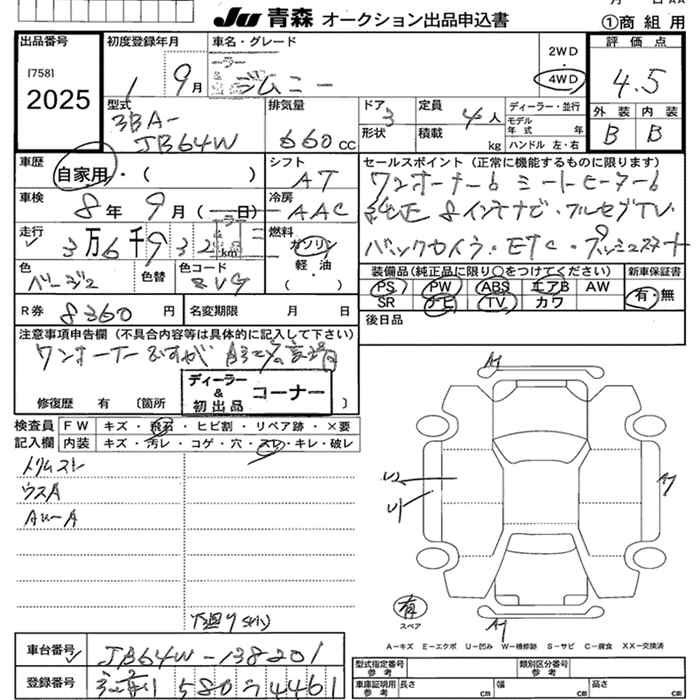 JU 青森 オークション出品申込書
①商 組 用
出品番号
[758]
2025
初度登録年月
1 9月
車名・グレード
ジムニー
2WD
4WD
評価点
4.5
外装 内装
B B
型式
3BA-
JB64W
排気量
660cc
ドア
3
形状
定員
4人
積載
kg
ディーラー・並行
モデル
年式 年
ハンドル 左・右
車歴
自家用・( )
シフト
AT
セールスポイント(正常に機能するものに限ります)
ワンオーナー6 シートヒーター6
純正 8インチナビ・フルセグTV
バックカメラ・ETC・プッシュスタート
車検
8年 9月( 日)
冷房
AAC
走行
3万6千9 3 2 km
燃料
ガソリン
軽・油
( )
色
ベージュ
色替
色コード
装備品(純正品に限り○をつけてください)
新車保証書
PS PW ABS エアB AW
SR ナビ TV カワ
有・無
R券 8360円
名変期限 月 日
後日品
注意事項申告欄(不具合内容等は具体的に記入して下さい)
ディーラー
&
初出品
コーナー
修復歴 有 〔箇所 〕
検査員
記入欄
FW キズ・飛石・ヒビ割・リペア跡・×要
内装 キズ・汚レ・コゲ・穴・スレ・キレ・破レ
トリムスレ
ウスA
A1
A1
有
スペア
A1
下廻りサビ
A－キズ E－エクボ U－凹み W－補修跡 S－サビ C－腐食 XX－交換済
車台番号 JB64W-138201
登録番号 580 4461
型式指定番号
参考
類別区分番号
参考
車庫証明用
参考
長さ cm
幅 cm
高さ cm